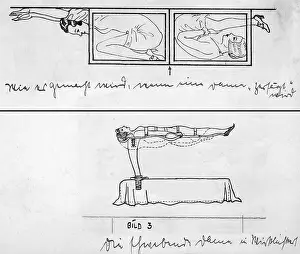 Wie es gemacht wird, wenn eine Dame „zersägt“
wird
BILD 3
Die schwebende Dame in Wirklichkeit